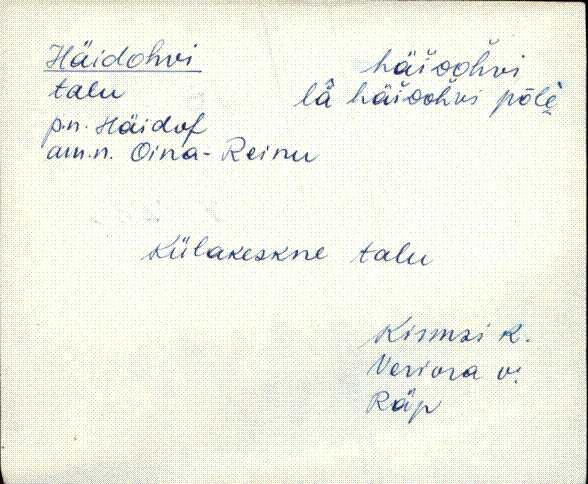 Häidohvi
talu
p.n. Häidof
am.n. Oina-Reinu
häi̬oohvi
lä häi̬oohvi põlè
Külakeskne talu
Kirmsi k.
Veriora v.
Räp